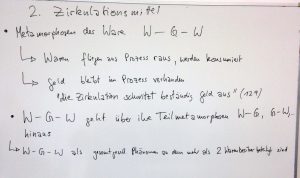 2. Zirkulationsmittel
• Metamorphosen des Ware W – G – W
↳ Waren fliegen aus Prozess raus, werden konsumiert
↳ Geld bleibt im Prozess vorhanden
"die Zirkulation schwitzt beständig Geld aus" (127)
• W – G – W geht über ihre Teilmetamorphosen W-G, G-W
hinaus
↳ W – G – W als Phänomen an dem mehr als 2 Warenbesitzer beteiligt sind